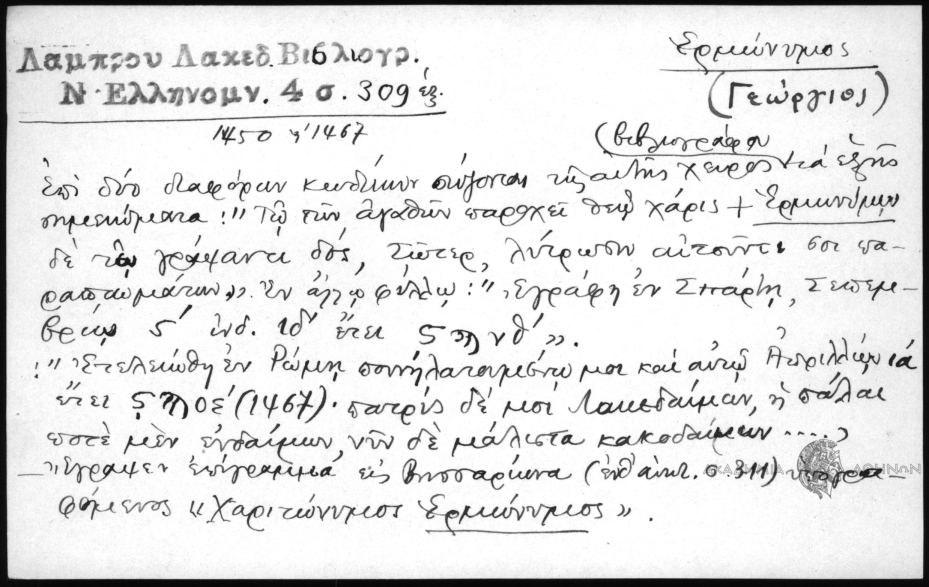 Λαμπρου Λακεδ. Βιβλιογρ.
Ν. Ελληνομν. 4 σ. 309 ἑξ.
Ἑρμώνυμος
(Γεώργιος)
1450 ἠ 1467
(βιβλιογράφου
Ἐπὶ δύο διαφόρων κωδίκων σώζονται τῆς αὐτῆς χειρὸς τὰ ἑξῆς
σημειώματα: "Τῷ τῶν ἀγαθῶν παροχεῖ θεῷ χάρις + Ἑρμωνύμῳ
δὲ τῷ γράψαντι δός, Σῶτερ, λύτρωσιν αἰτοῦντί σοι πα-
ραπτωμάτων". Ἐν ἄλλῳ φύλλῳ: "Ἐγράφη ἐν Σπάρτῃ, Σεπτεμ-
βρίῳ ς´ ἰνδ. ιδ´ ἔτει ϛϡνθ´".
: "Ἐτελειώθη ἐν Ρώμῃ μοι καὶ αὐτῷ Ἀπριλλίῳ ιά
ἔτει ϛϡοέ (1467). πατρὶς δέ μοί Λακεδαίμων, ἡ πάλαι
ποτὲ μὲν εὐδαίμων, νῦν δὲ μάλιστα κακοδαίμων ....,
— Ἔγραψεν ἐπίγραμμα εἰς Βησσαρίωνα (ἔνθ' ἀνωτ. σ. 311) ὑπογρα-
φόμενος «Χαριτώνυμος Ἑρμώνυμος».
ΑΚΑΔΗΜΙΑ ΑΘΗΝΩΝ